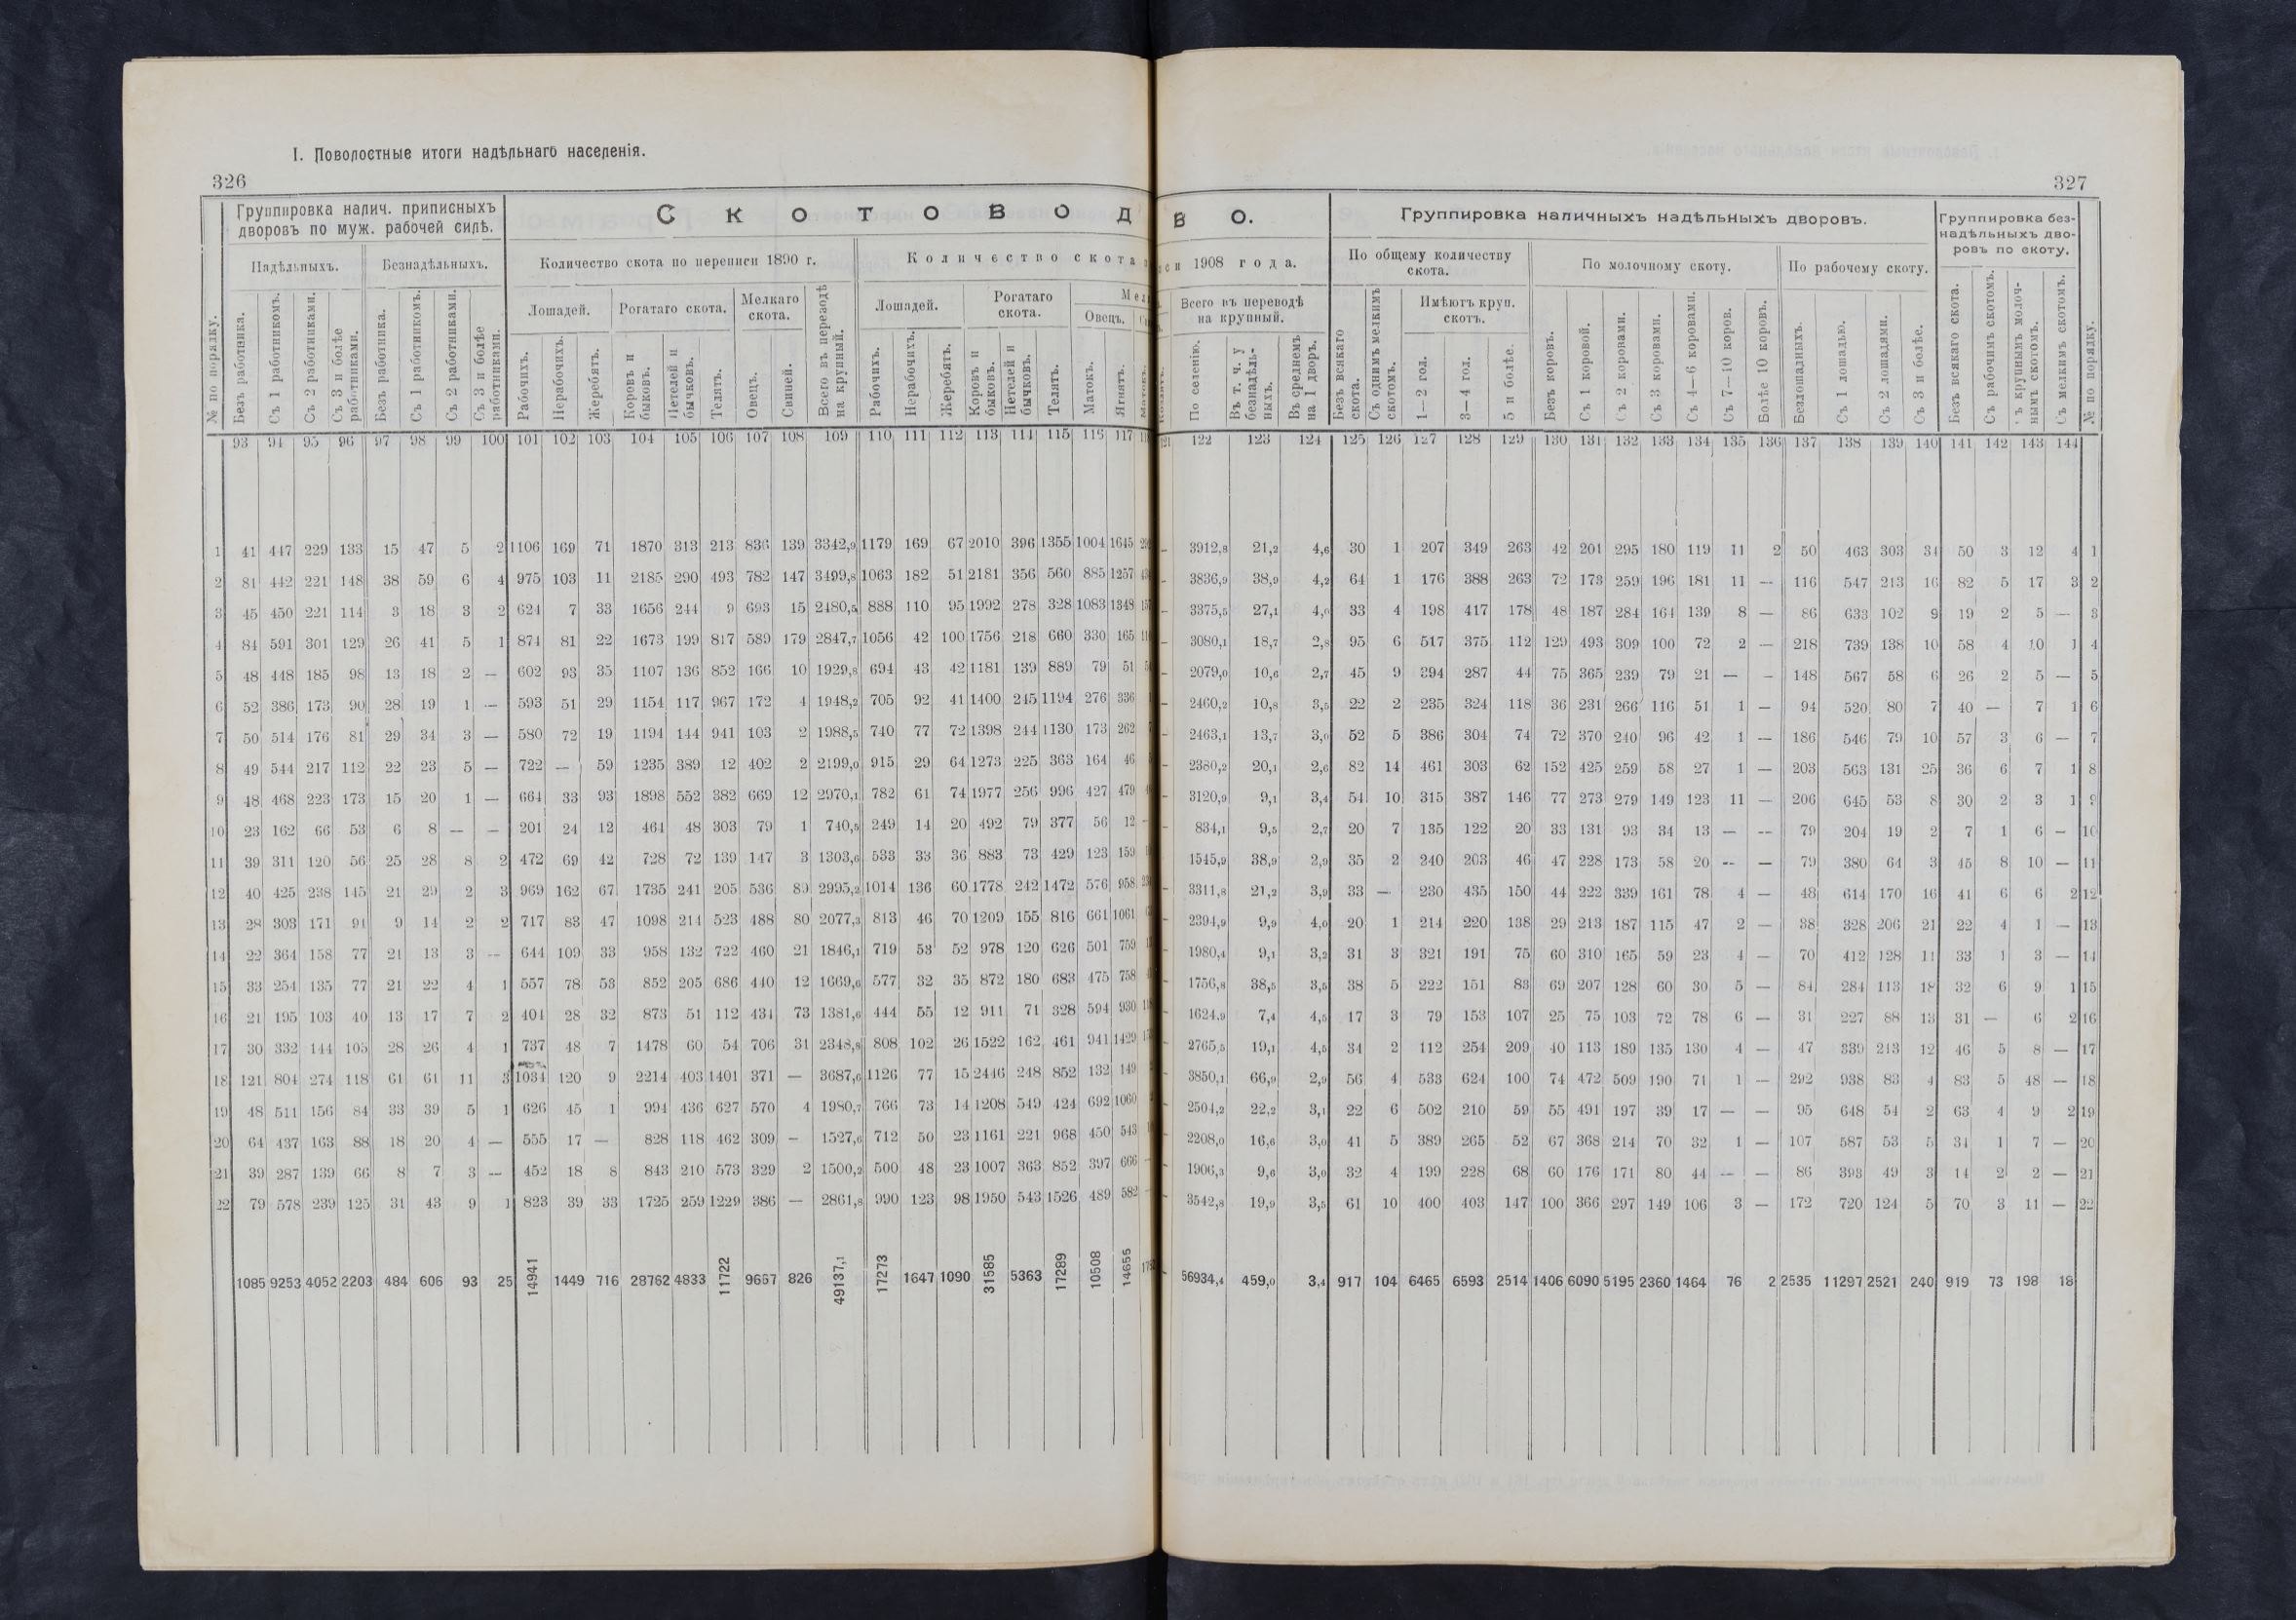 I. Поволостные итоги надѣльнаго населенія.
326
№ по порядку.
Группировка налич. приписныхъ
дворовъ по муж. рабочей силѣ.
Надѣльныхъ.
Безъ работника.
Съ 1 работникомъ.
Съ 2 работниками.
Съ 3 и болѣе
работниками.
Безнадѣльныхъ.
Безъ работника.
Съ 1 работникомъ.
Съ 2 работниками.
Съ 3 и болѣе
работниками.
СКОТОВОД
Количество скота по переписи 1890 г.
Лошадей.
Рабочихъ.
Нерабочихъ.
Жеребятъ.
Рогатаго скота.
Коровъ и
быковъ.
Нетелей и
бычковъ.
Телятъ.
Мелкаго
скота.
Овецъ.
Свиней.
Всего въ переводѣ
на крупный.
Количество скота
Лошадей.
Рабочихъ.
Нерабочихъ.
Жеребятъ.
Рогатаго
скота.
Коровъ и
быковъ.
Нетелей и
бычковъ.
Телятъ.
Овецъ.
Матокъ.
Ягнятъ.
93 94 95 96 97 98 99 100 101 102 103 104 105 106 107 108 109 110 111 112 113 114 115 116 117
1 41 447 229 133 15 47 5 2 1106 169 71 1870 313 213 836 139 3342,9 1179 169 67 2010 396 1355 1004 1645
2 81 442 221 148 38 59 6 4 975 103 11 2185 290 493 782 147 3499,8 1063 182 51 2181 356 560 885 1257
3 45 450 221 114 3 18 3 2 624 7 33 1656 244 9 693 15 2480,5 888 110 95 1992 278 328 1083 1348
4 84 591 301 129 26 41 5 1 874 81 22 1673 199 817 589 179 2847,7 1056 42 100 1756 218 660 330 165
5 48 448 185 98 13 18 2 — 602 93 35 1107 136 852 166 10 1929,8 694 43 42 1181 139 889 79 51
6 52 386 173 90 28 19 1 — 593 51 29 1154 117 967 172 4 1948,2 705 92 41 1400 245 1194 276 336
7 50 514 176 81 29 34 3 — 580 72 19 1194 144 941 103 2 1988,5 740 77 72 1398 244 1130 173 262
8 49 544 217 112 22 23 5 — 722 — 59 1235 389 12 402 2 2199,0 915 29 64 1273 225 363 164 46
9 48 468 223 173 15 20 1 — 664 33 93 1898 552 382 669 12 2970,1 782 61 74 1977 256 996 427 479
10 23 162 66 53 6 8 — — 201 24 12 464 48 303 79 1 740,5 249 14 20 492 79 377 56 12 —
11 39 311 120 56 25 28 8 2 472 69 42 728 72 139 147 3 1303,6 533 33 36 883 73 429 123 159
12 40 425 238 145 21 29 2 3 969 162 67 1735 241 205 536 89 2995,2 1014 136 60 1778 242 1472 576 958
13 28 303 171 91 9 14 2 2 717 83 47 1098 214 523 488 80 2077,3 813 46 70 1209 155 816 661 1061
14 22 364 158 77 21 13 3 — 644 109 33 958 132 722 460 21 1846,1 719 53 52 978 120 626 501 759
15 33 254 135 77 21 22 4 1 557 78 53 852 205 686 440 12 1669,6 577 32 35 872 180 683 475 758
16 21 195 103 40 13 17 7 2 401 28 32 873 51 112 434 73 1381,6 444 55 12 911 71 328 594 930
17 30 332 144 105 28 26 4 1 737 48 7 1478 60 54 706 31 2348,8 808 102 26 1522 162 461 941 1429
18 121 804 274 118 61 61 11 3 1034 120 9 2214 403 1401 371 — 3687,6 1126 77 15 2446 248 852 132 149
19 48 511 156 84 33 39 5 1 626 45 1 994 436 627 570 4 1980,7 766 73 14 1208 549 424 692 1060
20 64 437 163 88 18 20 4 — 555 17 — 828 118 462 309 — 1527,6 712 50 23 1161 221 968 450 543
21 39 287 139 66 8 7 3 — 452 18 8 843 210 573 329 2 1500,2 500 48 23 1007 363 852 397 666 —
22 79 578 239 125 31 43 9 1 823 39 33 1725 259 1229 386 — 2861,8 990 123 98 1950 543 1526 489 582 —
1085 9253 4052 2203 484 606 93 25 14941 1449 716 28762 4833 11722 9667 826 49137,1 17273 1647 1090 31585 5363 17289 10508 14655
327
ВО.
1908 года.
Всего въ переводѣ
на крупный.
По селенію.
Въ т. ч. у
безнадѣль-
ныхъ.
Въ среднемъ
на 1 дворъ.
Группировка наличныхъ надѣльныхъ дворовъ.
По общему количеству
скота.
Безъ всякаго
скота.
Съ однимъ мелкимъ
скотомъ.
Имѣютъ круп.
скотъ.
1—2 гол.
3—4 гол.
5 и болѣе.
По молочному скоту.
Безъ коровъ.
Съ 1 коровой.
Съ 2 коровами.
Съ 3 коровами.
Съ 4—6 коровами.
Съ 7—10 коров.
Болѣе 10 коровъ.
По рабочему скоту.
Безлошадныхъ.
Съ 1 лошадью.
Съ 2 лошадями.
Съ 3 и болѣе.
Группировка без-
надѣльныхъ дво-
ровъ по скоту.
Безъ всякаго скота.
Съ рабочимъ скотомъ.
ъ крупнымъ молоч-
нымъ скотомъ.
Съ мелкимъ скотомъ.
№ по порядку.
122 123 124 125 126 127 128 129 130 131 132 133 134 135 136 137 138 139 140 141 142 143 144
— 3912,8 21,2 4,6 30 1 207 349 263 42 201 295 180 119 11 2 50 463 303 34 50 3 12 4 1
— 3836,9 38,9 4,2 64 1 176 388 263 72 173 259 196 181 11 — 116 547 213 16 82 5 17 3 2
— 3375,5 27,1 4,0 33 4 198 417 178 48 187 284 164 139 8 — 86 633 102 9 19 2 5 — 3
— 3080,1 18,7 2,8 95 6 517 375 112 129 493 309 100 72 2 — 218 739 138 10 58 4 10 1 4
— 2079,0 10,6 2,7 45 9 394 287 44 75 365 239 79 21 — — 148 567 58 6 26 2 5 — 5
— 2460,2 10,8 3,5 22 2 235 324 118 36 231 266 116 51 1 — 94 520 80 7 40 — 7 1 6
— 2463,1 13,7 3,0 52 5 386 304 74 72 370 240 96 42 1 — 186 546 79 10 57 3 6 — 7
— 2380,2 20,1 2,6 82 14 461 303 62 152 425 259 58 27 1 — 203 563 131 25 36 6 7 1 8
— 3120,9 9,1 3,4 54 10 315 387 146 77 273 279 149 123 11 — 206 645 53 8 30 2 3 1 9
— 834,1 9,5 2,7 20 7 135 122 20 33 131 93 34 13 — — 79 204 19 2 7 1 6 — 10
— 1545,9 38,9 2,9 35 2 240 203 46 47 228 173 58 20 — — 79 380 64 3 45 8 10 — 11
— 3311,8 21,2 3,9 33 — 230 435 150 44 222 339 161 78 4 — 48 614 170 16 41 6 6 2 12
— 2394,9 9,9 4,0 20 1 214 220 138 29 213 187 115 47 2 — 38 328 206 21 22 4 1 — 13
— 1980,4 9,1 3,2 31 3 321 191 75 60 310 165 59 23 4 — 70 412 128 11 33 1 3 — 14
— 1756,8 38,5 3,5 38 5 222 151 83 69 207 128 60 30 5 — 84 284 113 18 32 6 9 1 15
— 1624,9 7,4 4,5 17 3 79 153 107 25 75 103 72 78 6 — 31 227 88 13 31 — 6 2 16
— 2765,5 19,1 4,5 34 2 112 254 209 40 113 189 135 130 4 — 47 339 213 12 46 5 8 — 17
— 3850,1 66,9 2,9 56 4 533 624 100 74 472 509 190 71 1 — 292 938 83 4 83 5 48 — 18
— 2504,2 22,2 3,1 22 6 502 210 59 55 491 197 39 17 — — 95 648 54 2 63 4 9 2 19
— 2208,0 16,6 3,0 41 5 389 265 52 67 368 214 70 32 1 — 107 587 53 5 34 1 7 — 20
— 1906,3 9,6 3,0 32 4 199 228 68 60 176 171 80 44 — — 86 393 49 3 14 2 2 — 21
— 3542,8 19,9 3,5 61 10 400 403 147 100 366 297 149 106 3 — 172 720 124 5 70 3 11 — 22
— 56934,4 459,0 3,4 917 104 6465 6593 2514 1406 6090 5195 2360 1464 76 2 2535 11297 2521 240 919 73 198 18